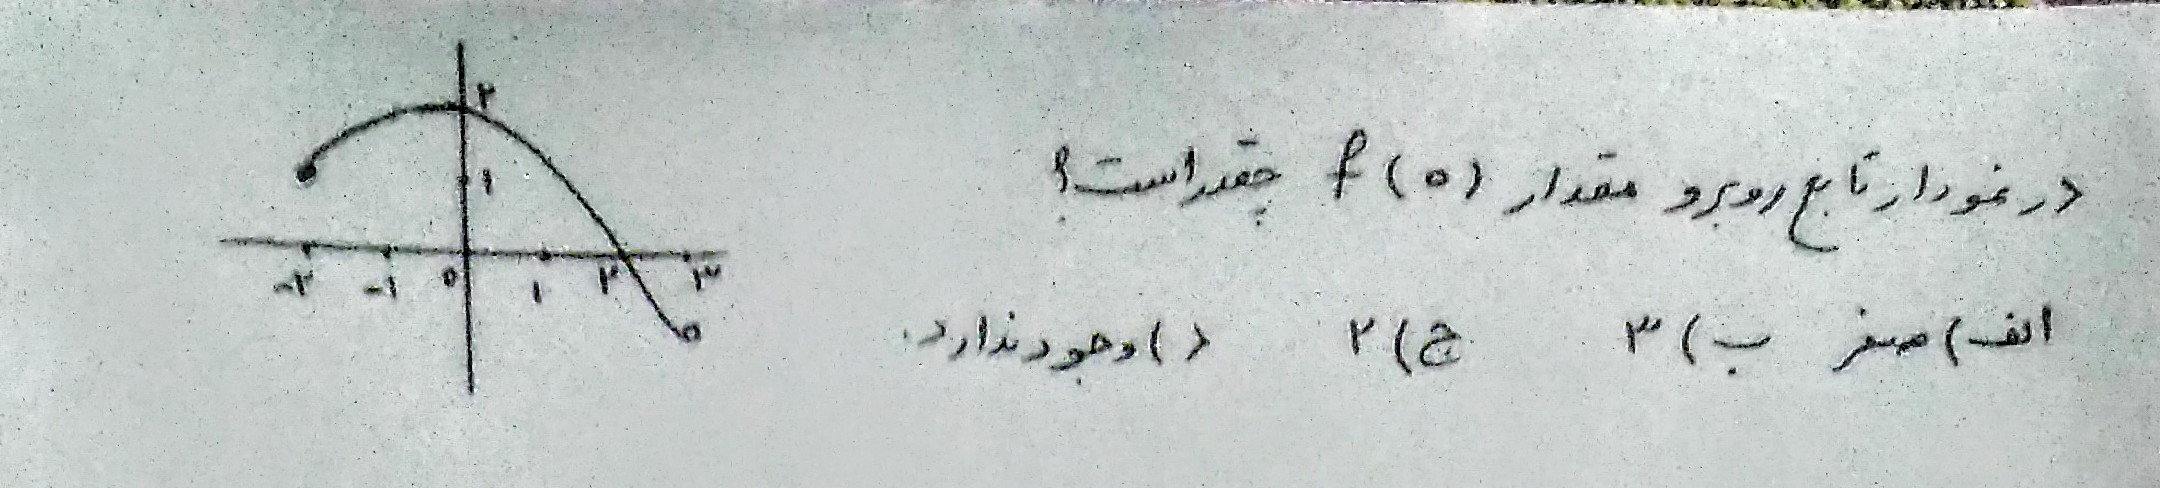 در نمودار تابع روبرو مقدار f(۰) چقدر است؟
الف) صفر ب) ۳ ج) ۲ د) وجود ندارد.
۲
۱
-۲ -۱ ۰ ۱ ۲ ۳